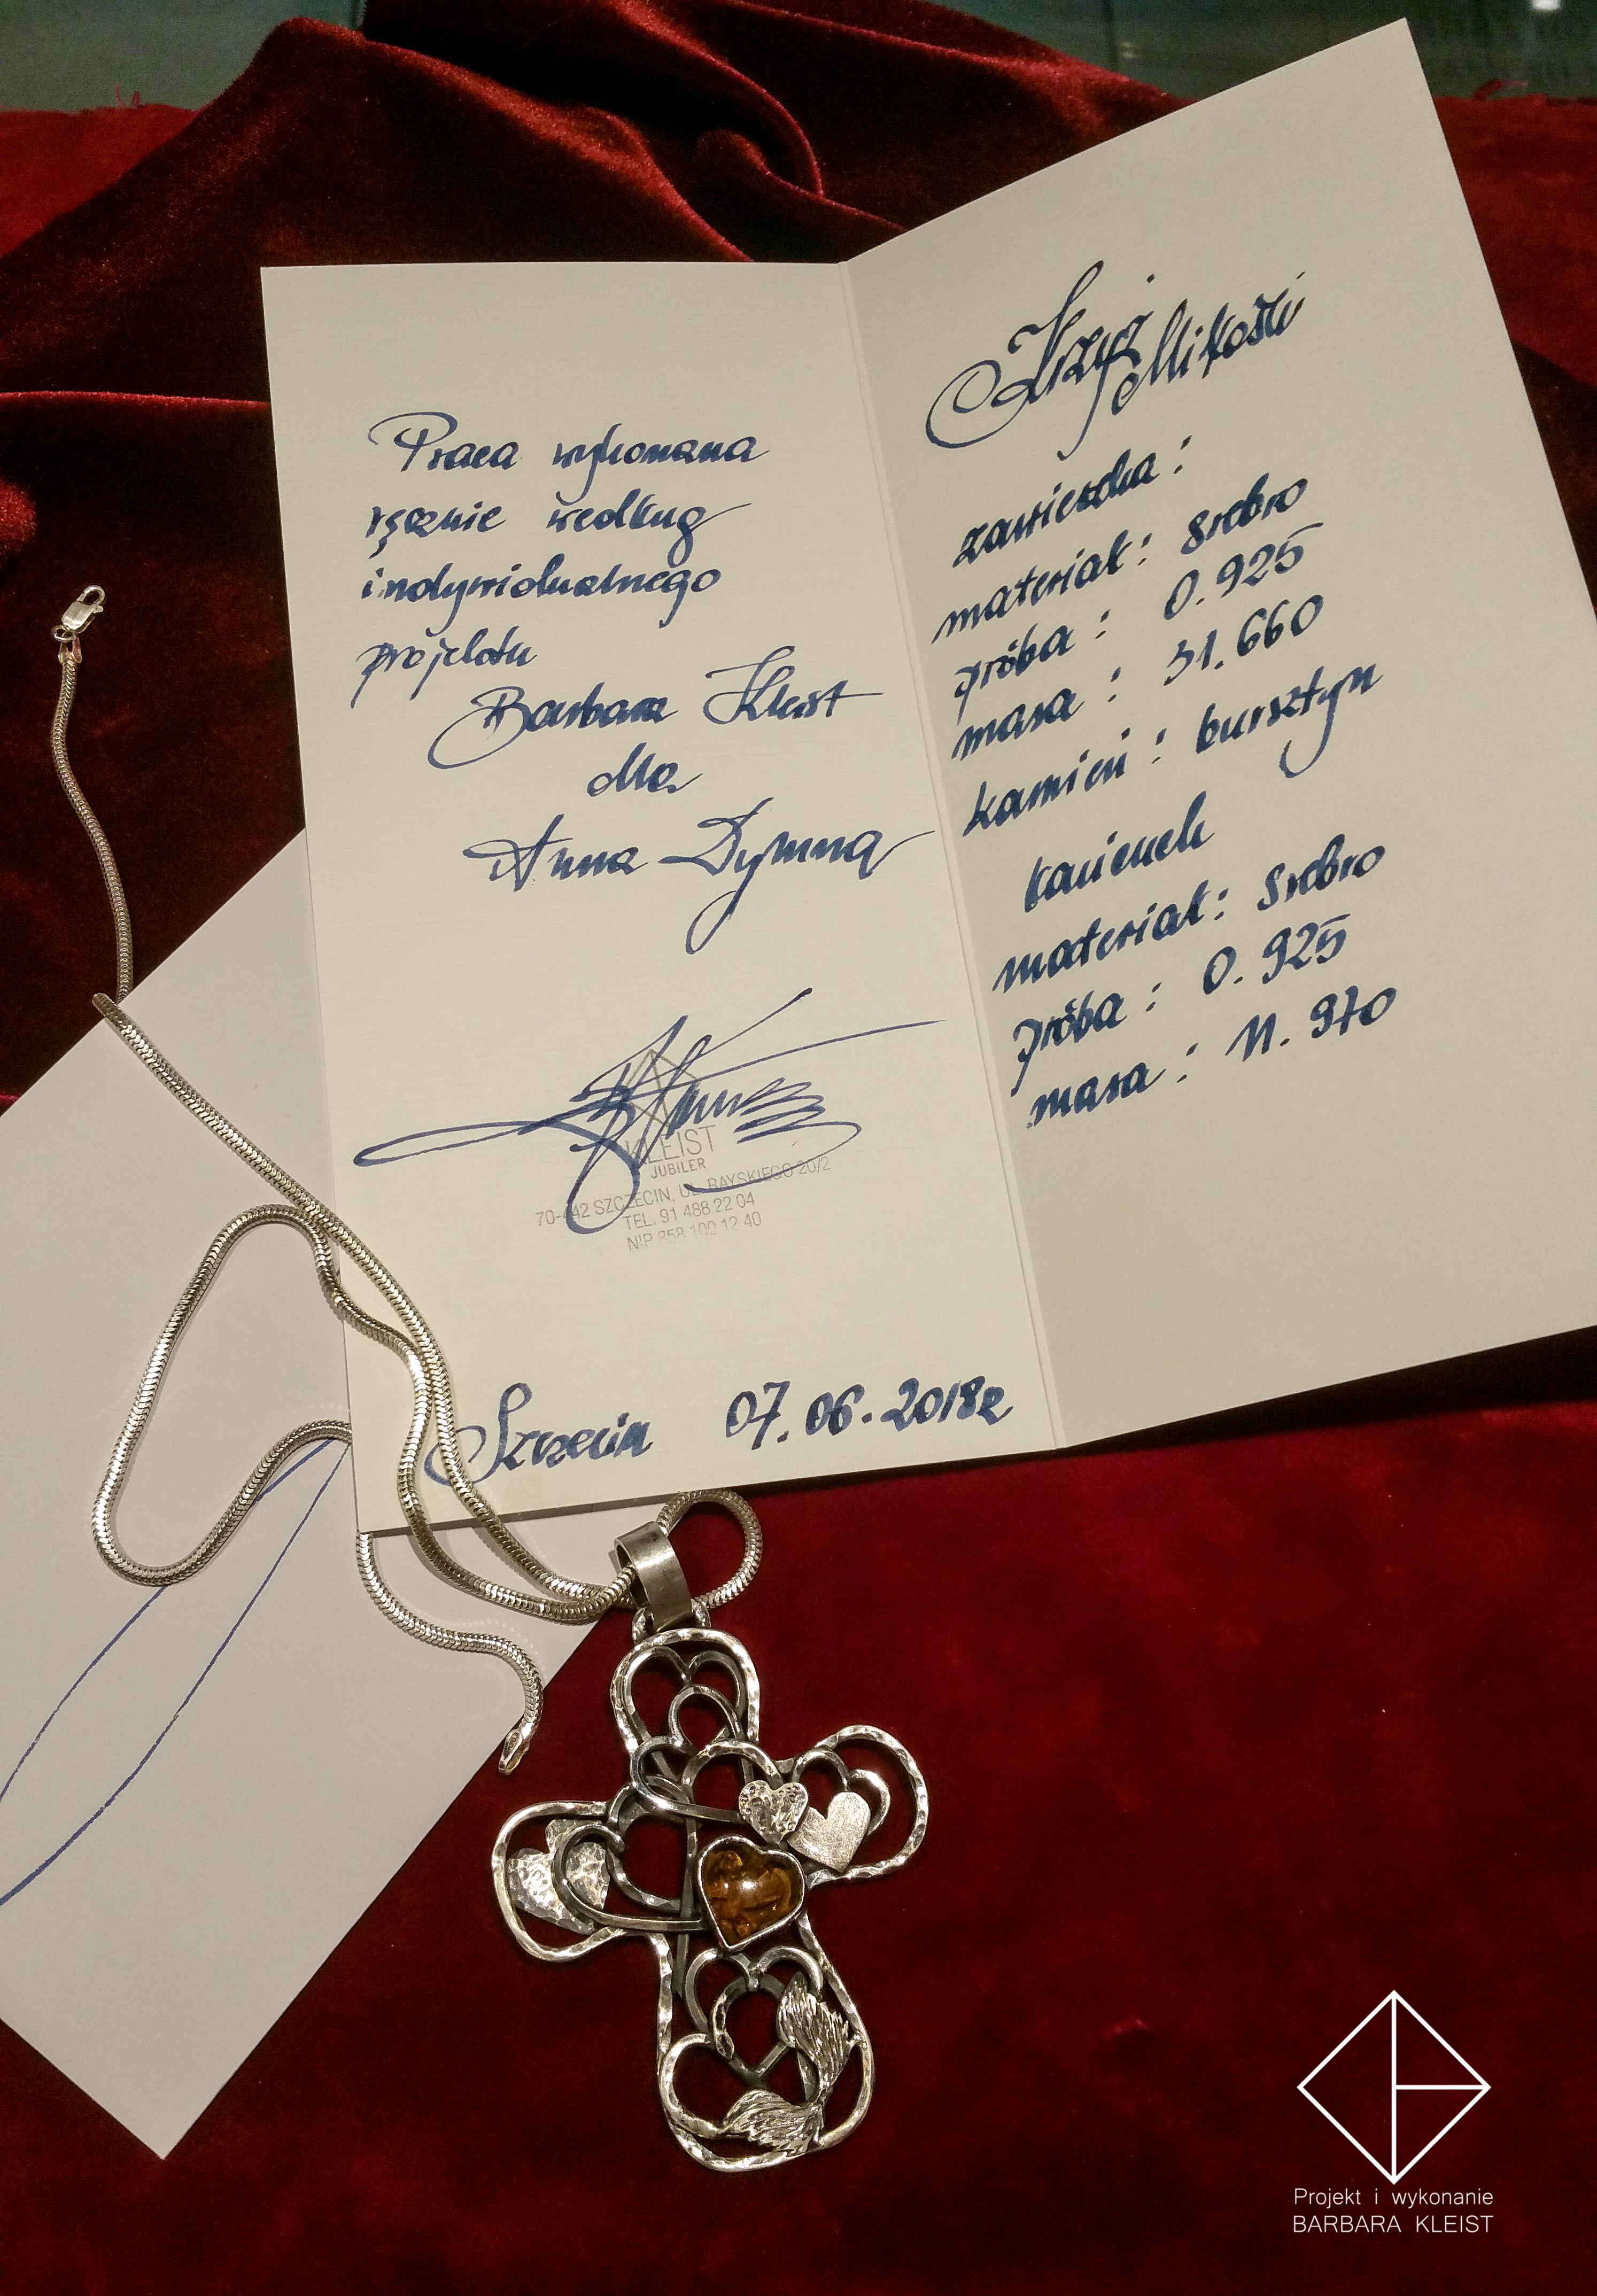 Praca wykonana
ręcznie według
indywidualnego
projektu
Barbara Kleist
dla
Anna Dymna
KLEIST
JUBILER
70-442 SZCZECIN, UL. RAYSKIEGO 20/2
TEL. 91 488 22 04
NIP 858 100 12 40
Szczecin 07.06.2018r
Krzyż
Miłości
zawieszka:
materiał: srebro
próba: 0.925
masa: 31.660
kamień: bursztyn
materiał: srebro
próba: 0.925
masa: 11.970
Projekt i wykonanie
BARBARA KLEIST